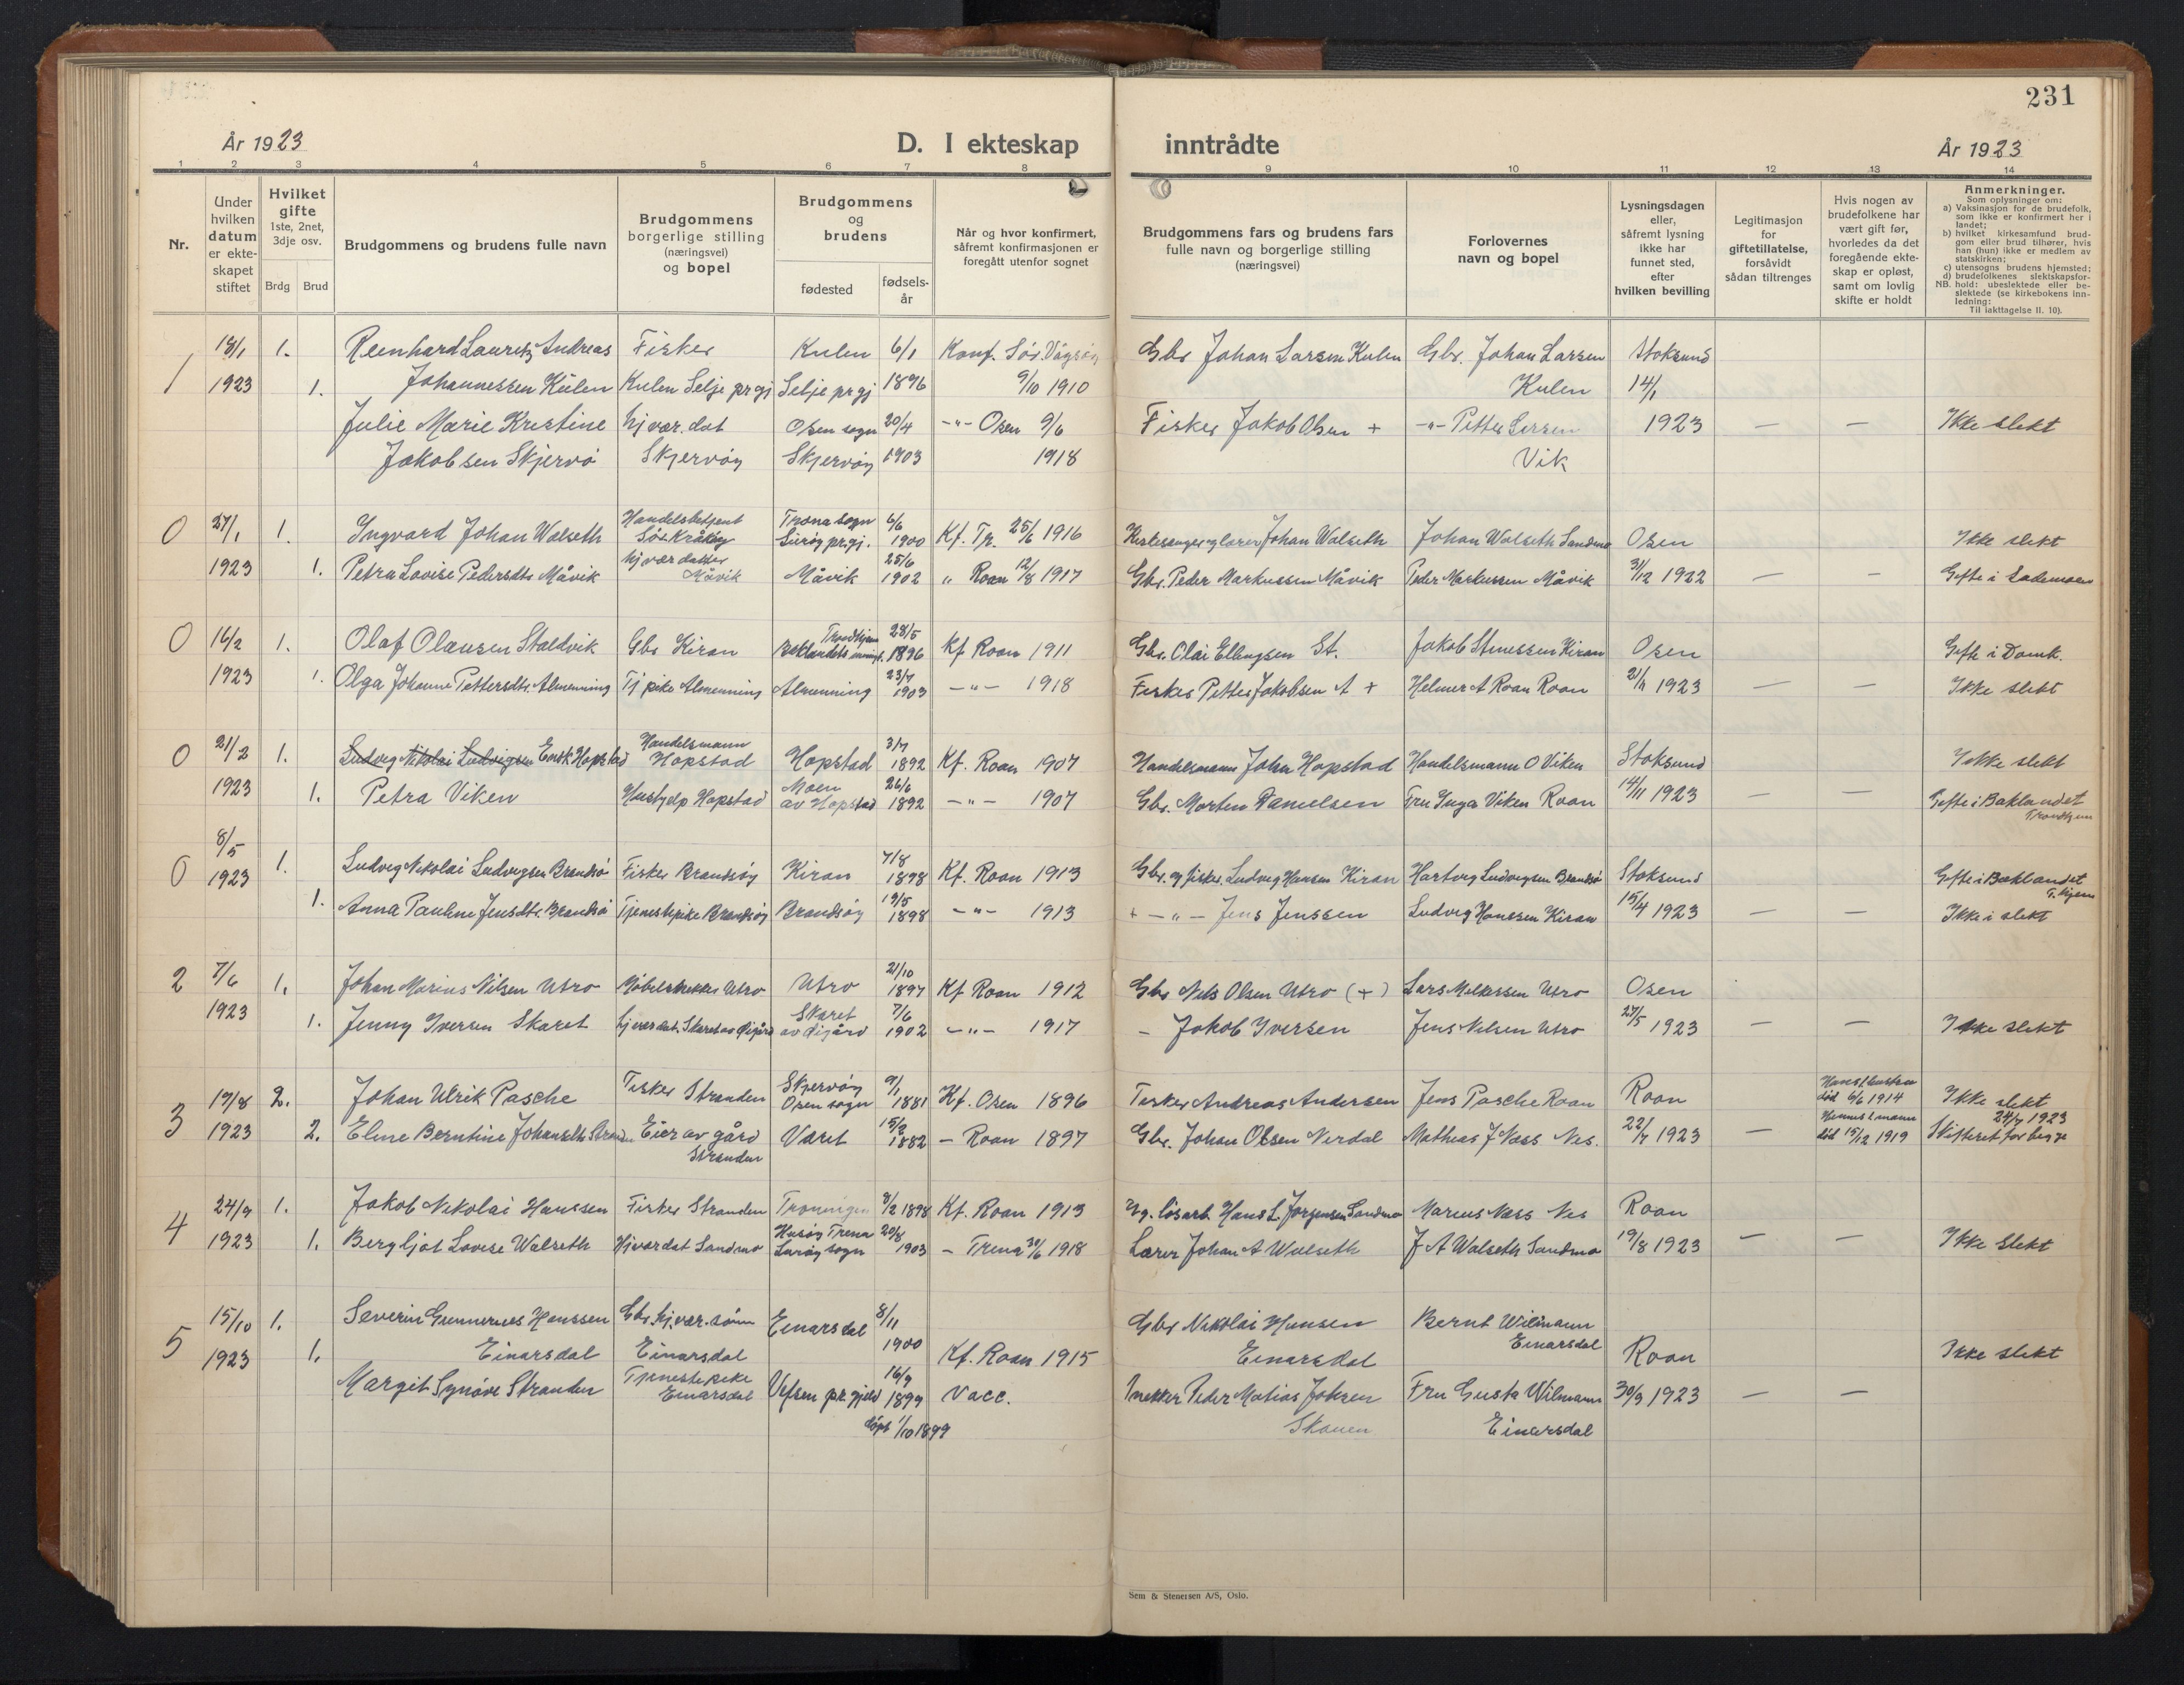 231
År 1923
D. I ekteskap inntrådte
År 1923
1 2 3 4 5 6 7 8 9 10 11 12 13 14
Nr.
Under hvilken datum er ekteskapet stiftet
Hvilket gifte 1ste, 2net, 3dje osv.
Brdg Brud
Brudgommens og brudens fulle navn
Brudgommens borgerlige stilling (næringsvei) og bopel
Brudgommens og brudens
fødested
fødselsår
Når og hvor konfirmert, såfremt konfirmasjonen er foregått utenfor sognet
Brudgommens fars og brudens fars fulle navn og borgerlige stilling (næringsvei)
Forlovernes navn og bopel
Lysningsdagen eller, såfremt lysning ikke har funnet sted, efter hvilken bevilling
Legitimasjon for giftetillatelse, forsåvidt sådan tiltrenges
Hvis nogen av brudefolkene har vært gift før, hvorledes da det foregående ekteskap er opløst, samt om lovlig skifte er holdt
Anmerkninger.
Som oplysninger om:
a) Vaksinasjon for de brudefolk, som ikke er konfirmert her i landet;
b) hvilket kirkesamfund brudgom eller brud tilhører, hvis han (hun) ikke er medlem av statskirken;
c) utensogns brudens hjemsted;
d) brudefolkenes slektskapsforhold: ubeslektede eller beslektede (se kirkebokens innledning:
NB.
Til iakttagelse II. 10).
18/1 1. Reinhard Lauritz Andreas Fisker Kulen 6/1 Konf. Sör. Vågsöy Gbr Johan Larsen Kulen Gbr. Johan Larsen Stoksund
1 1923 1. Johannessen Kulen Kulen Selje prgj Selje prgj 1896 9/10 1910 Kulen 14/1
Julie Marie Kristine hjvær. dat Osen sogn 20/4 -"- Osen 9/6 Fisker Jakob Olsen + -"- Petter 1923 — — Ikke slekt
Jakobsen Skjervö Skjervöy Skjervöy 1903 1918 Vik
0 27/1 1. Ingvard Johan Walseth Handelsbetjent Sör Kråköy Træna sogn Luröy prgj. 6/6 1900 Kf. Tr. 25/6 1916 Kirkesanger og lærer Johan Walseth Johan Walseth Sandmo Osen Ikke slekt
1923 1. Petra Lovise Pedersdtr Måvik hjvær datter Måvik Måvik 25/6 1902 " Roan 12/8 1917 Gbr. Peder Markussen Måvik Peder Markussen Måvik 31/12 1922 — — Gifte i Lademoen
0 16/2 1. Olaf Olausen Staldvik Gbr Kiran Trondhjem Baklandets 28/5 1896 Kf Roan 1911 Gbr. Olai Ellingsen St. Jakob Stenessen Kiran Osen Gifte i Domk.
1923 1. Olga Johanne Pettersdtr. Almenning Tj pike Almenning Almenning 23/7 1903 -"- 1918 Fisker Petter Jakobsen A + Helmer A Roan Roan 21/1 1923 — — Ikke slekt
0 21/2 1. Ludvig Nikolai Ludvigsen Enok Hopstad Handelsmann Hopstad Hopstad 3/7 1892 Kf. Roan 1907 Handelsmann John Hopstad Handelsmann O Viken Stoksund Ikke slekt
1923 1. Petra Viken Hushjelp Hopstad Moen av Hopstad 26/6 1892 -"- 1907 Gbr. Morten Danielsen Fru Inga Viken Roan 14/11 1923 — — Gifte i Baklandet Trondhjem
8/5
0 1923 1. Ludvig Nikolai Ludvigsen Brandsö Fisker Brandsöy Kiran 7/8 1898 Kf. Roan 1913 Gbr. og fisker. Ludvig Hansen Kiran Hartvig Ludvigsen Brandsö Stoksund Gifte i Baklandet T.hjem
1. Anna Pauline Jensdtr. Brandsö Tjenestepike Brandsöy Brandsöy 19/5 1898 -"- 1913 + -"- Jens Jenssen Ludvig Hanssen Kiran 15/4 1923 — — Ikke i slekt
2 7/6 1. Johan Marius Nilsen Utro Möbelsnekker Utro Utro 21/10 1897 Kf Roan 1912 Gbr Nils Olsen Utro (+) Lars Melkersen Utro Osen
1923 1. Jenny Iversen Skaret hjvær dat. Skaret av Öigård Skaret av Öigård 7/6 1902 -"- 1917 - Jakob Iversen Jens Nilsen Utro 27/5 1923 — — Ikke slekt
3 19/8 2. Johan Ulrik Pasche Fisker Stranden Skjervöy Osen sogn 9/1 1881 Kf. Osen 1896 Fisker Andreas Andersen Jens Pasche Roan Roan Hans 1. hustru död 6/6 1914 Ikke slekt
1923 2. Eline Berntine Johansdtr Stranden Eier av gård Stranden Været 15/2 1882 - Roan 1897 Gbr. Johan Olsen Nerdal Mathias J Næss Nes. 22/7 1923 — Hennes 1. mann död 15/12 1919 24/7 1923 Skifteret for begge
4 24/9 1. Jakob Nikolai Hanssen Fisker Stranden 3/2 1898 Kf. Roan 1913 Eg. lösarb. Hans L. Jørgensen Sandmo Marius Næss Nes Roan
1923 1. Bergljot Lovise Walseth Hjvær dat Sandmo Husöy Træna Luröy sogn 20/8 1903 - Træna 30/6 1918 Lærer Johan A Walseth J A Walseth Sandmo 19/8 1923 — — Ikke slekt
5 15/10 1. Severin Hanssen Gbr. hj.vær. sönn Einarsdal 8/11 Gbr Nikolai Hansen Bernt Wilmann
1923 1. Einarsdal Einarsdal 1900 Kf. Roan 1915 Einarsdal Einarsdal Roan Ikke slekt
Margit Synöve Stranden Tjenestepike Einarsdal Vefsen pr. gjeld 16/9 1899 Vacc. Snekker Peder Matias Johsen Fru Gusta Wilmann 30/9 1923 — —
döpt 1/10 1899 Skauen Einarsdal
Sem & Stenersen A/S, Oslo.